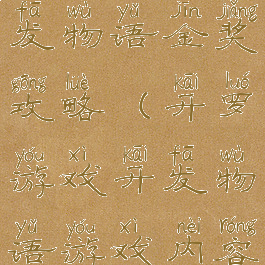 fā wù yǔ jīn jiǎng
发物语金奖
gōng lüè kāi luó
攻略（开罗
yóu xì kāi fā wù
游戏开发物
yǔ yóu xì nèi róng
语游戏内容